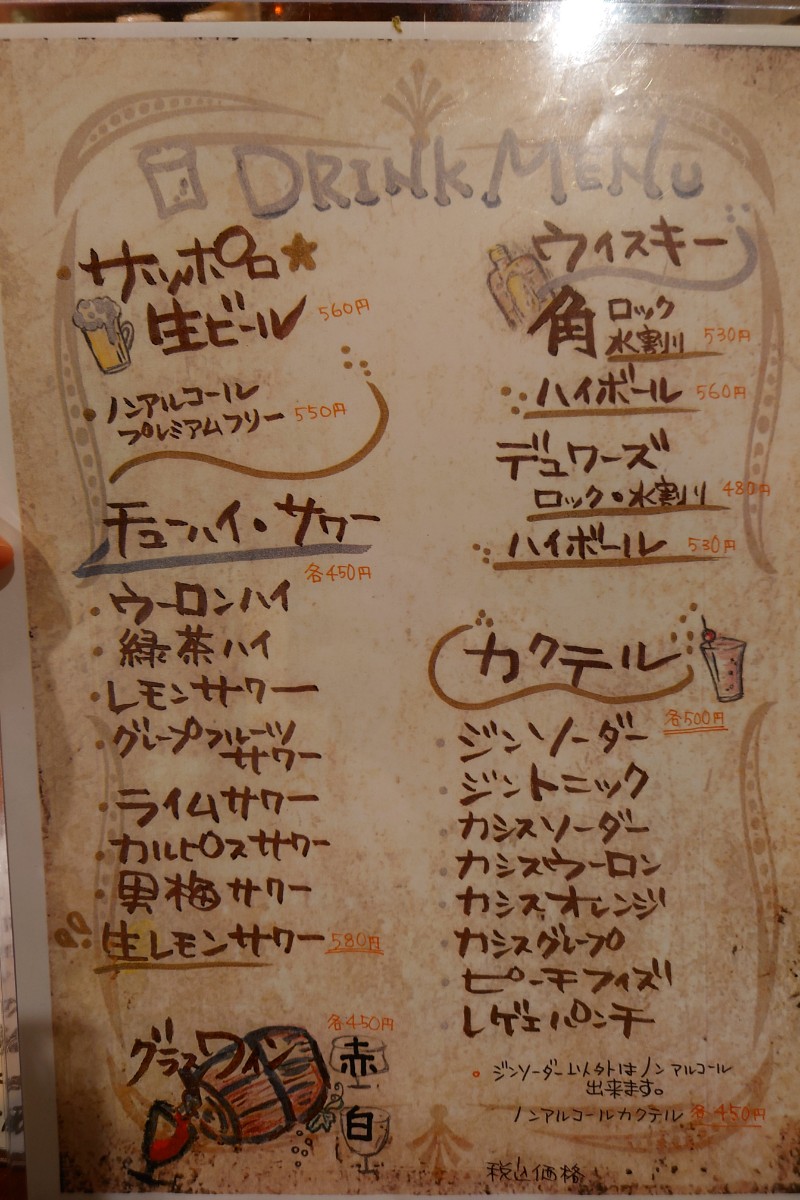 DRINK MENU
サッポロ
生ビール 560円
ノンアルコール
プレミアムフリー 550円
チューハイ・サワー
各450円
・ウーロンハイ
・緑茶ハイ
・レモンサワー
・グレープフルーツ
サワー
・ライムサワー
・カルピスサワー
・男梅サワー
・生レモンサワー 580円
グラスワイン 各450円
赤
白
ウィスキー
角 ロック
水割り 530円
ハイボール 560円
デュワーズ
ロック・水割り 480円
ハイボール 530円
カクテル
各500円
・ジンソーダー
・ジントニック
・カシスソーダー
・カシスウーロン
・カシスオレンジ
・カシスグレープ
・ピーチフィズ
・レゲエパンチ
・ジンソーダー以外はノンアルコール
出来ます。
ノンアルコールカクテル 各450円
税込価格